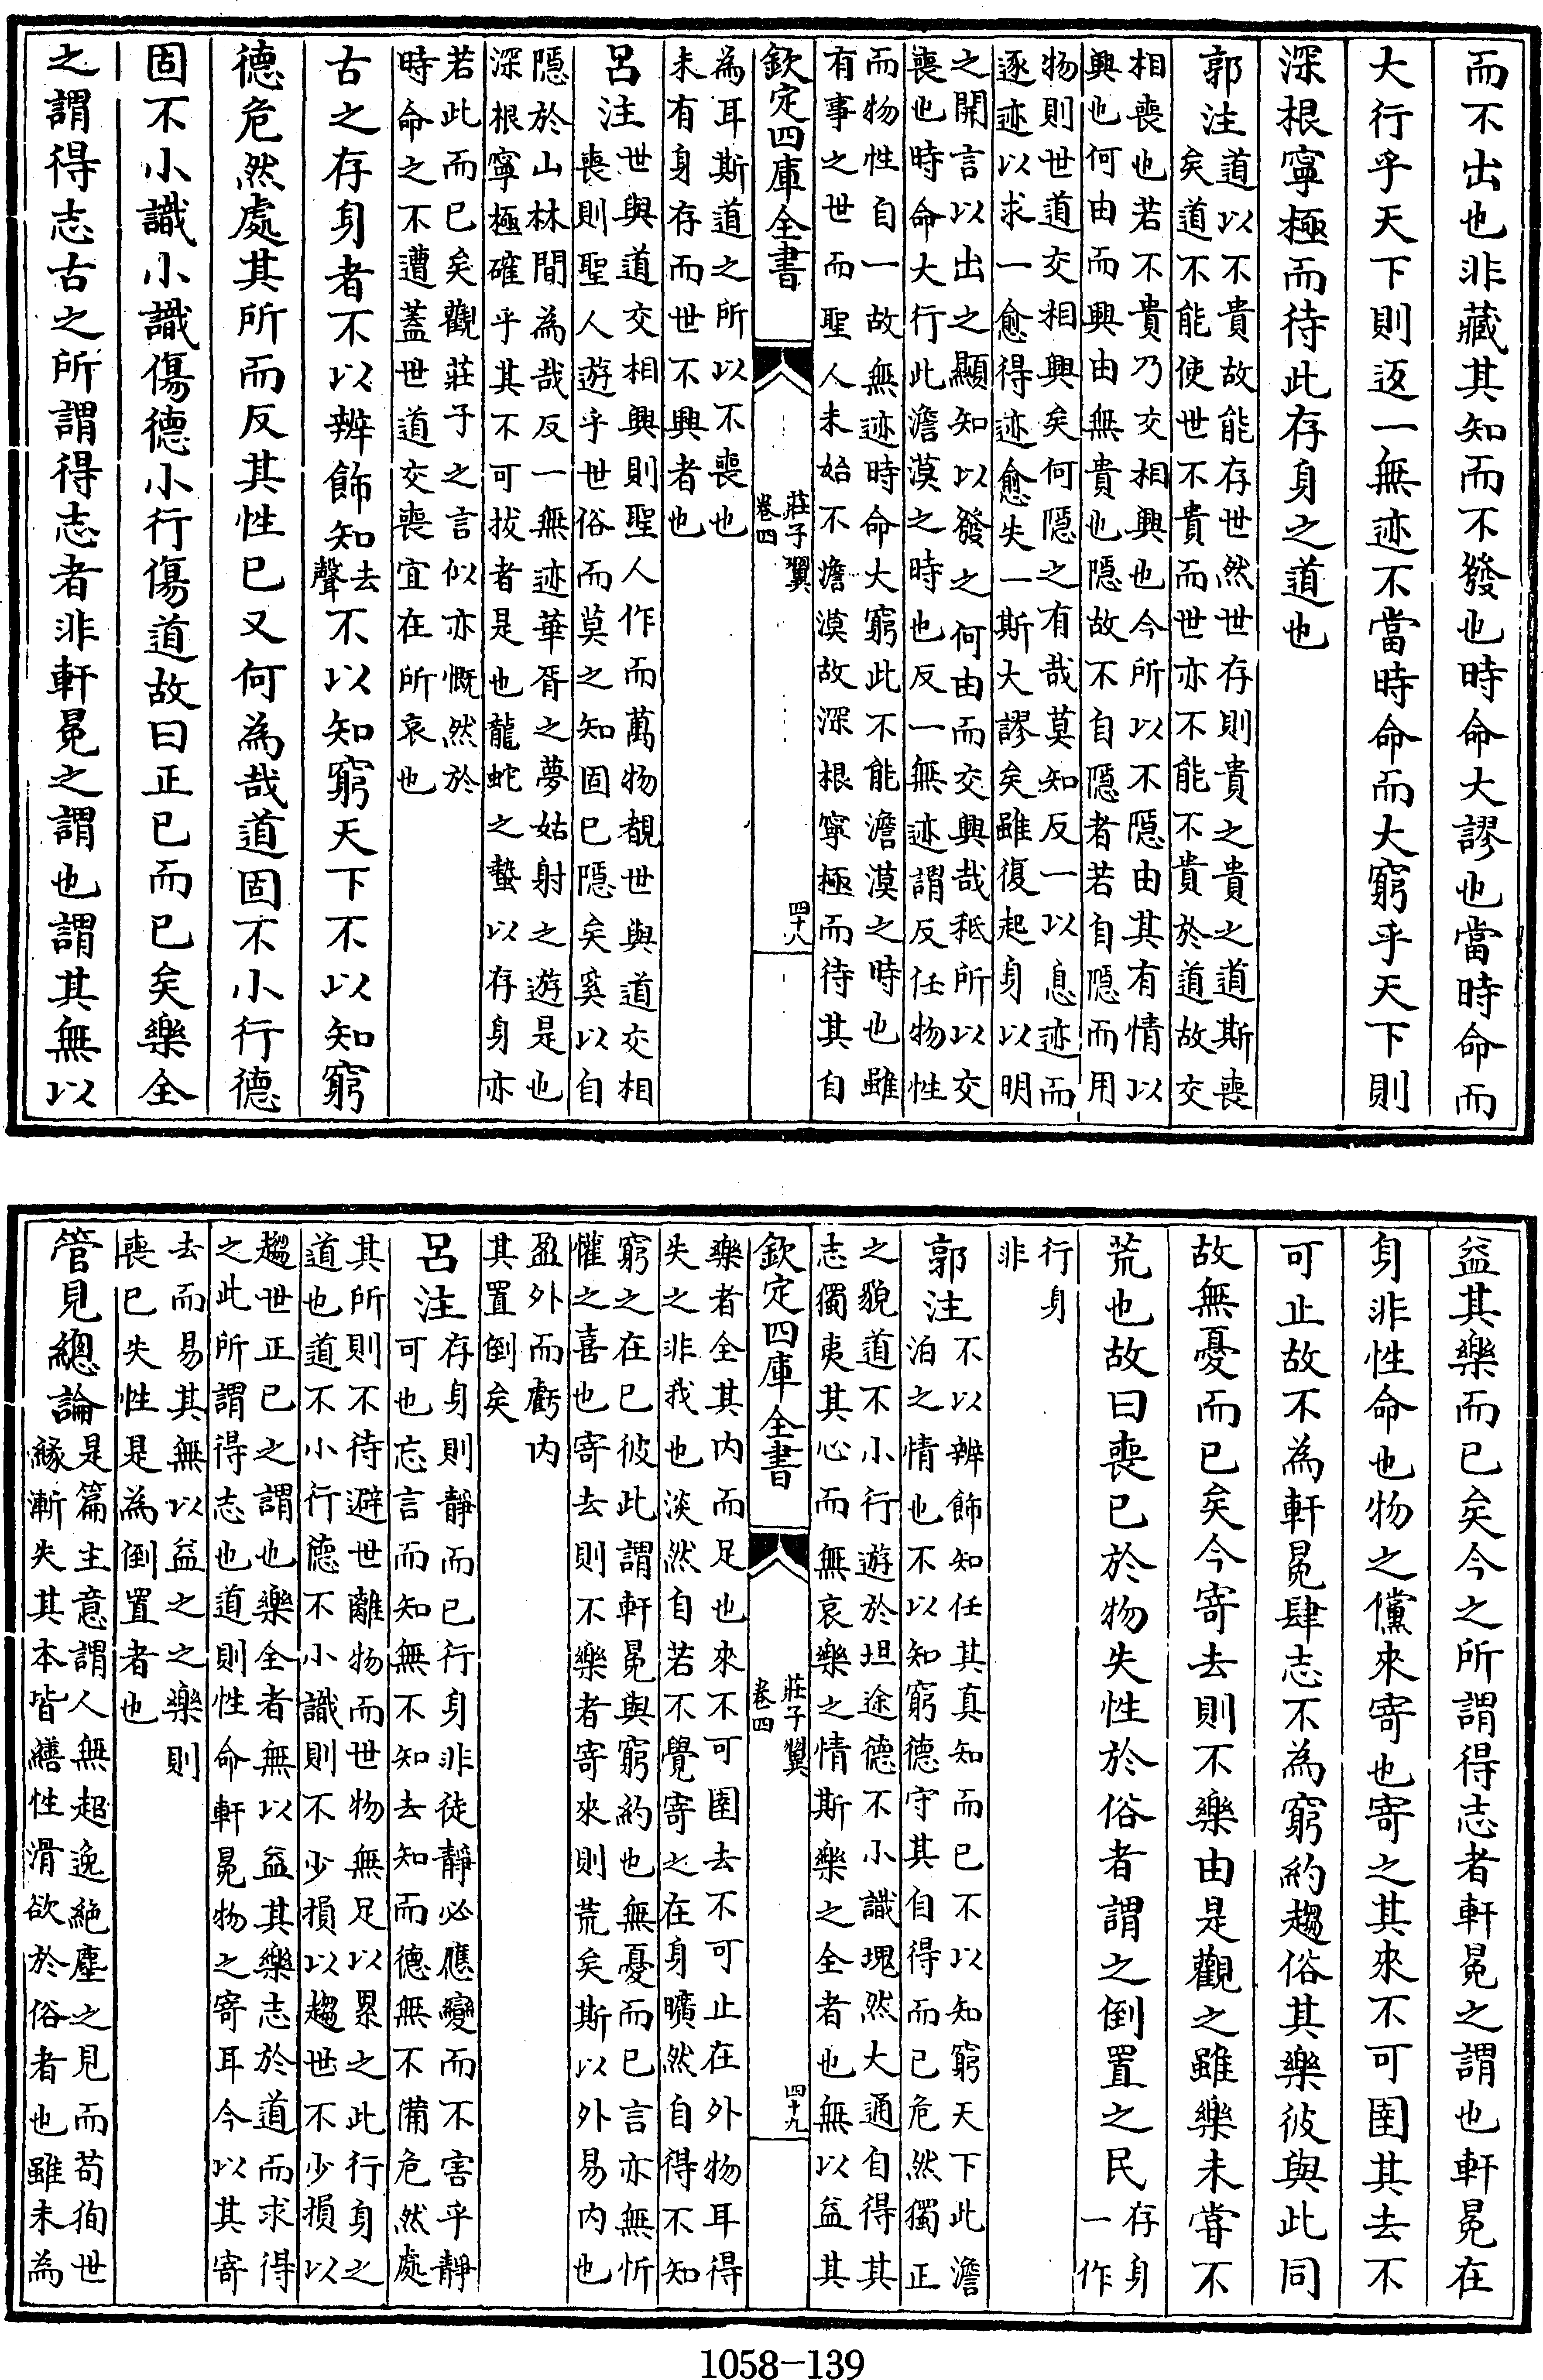 而不出也非藏其知而不發也時命大謬也當時命而
大行乎天下則返一無迹不當時命而大窮乎天下則
深根寧極而待此存身之道也
郭注道以不貴故能存世然世存則貴之貴之道斯喪
矣道不能使世不貴而世亦不能不貴於道故交
相喪也若不貴乃交相興也今所以不隱由其有情以
興也何由而興由無貴也隱故不自隱者若自隱而用
物則世道交相興矣何隱之有哉莫知反一以息迹而
逐迹以求一愈得迹愈失一斯大謬矣雖復起身以明
之開言以出之顯知以發之何由而交興哉秖所以交
喪也時命大行此澹漠之時也反一無迹謂反任物性
而物性自一故無迹時命大窮此不能澹漠之時也雖
有事之世而聖人未始不澹漠故深根寧極而待其自
欽定四庫全書
莊子翼
卷四
四十八
為耳斯道之所以不喪也
未有身存而世不興者也
呂注世與道交相興則聖人作而萬物覩世與道交相
喪則聖人遊乎世俗而莫之知固已隱矣奚以自
隱於山林間為哉反一無迹華胥之夢姑射之遊是也
深根寧極確乎其不可拔者是也龍蛇之蟄以存身亦
若此而已矣觀莊子之言似亦慨然於
時命之不遭蓋世道交喪宜在所哀也
古之存身者不以辨飾知去聲不以知窮天下不以知窮
德危然處其所而反其性已又何為哉道固不小行德
固不小識小識傷德小行傷道故曰正已而已矣樂全
之謂得志古之所謂得志者非軒冕之謂也謂其無以
益其樂而已矣今之所謂得志者軒冕之謂也軒冕在
身非性命也物之儻來寄也寄之其來不可圉其去不
可止故不為軒冕肆志不為窮約趨俗其樂彼與此同
故無憂而已矣今寄去則不樂由是觀之雖樂未甞不
荒也故曰喪已於物失性於俗者謂之倒置之民存身
一作
行身
非
郭注不以辨飾知任其真知而已不以知窮天下此澹
泊之情也不以知窮德守其自得而已危然獨正
之貌道不小行遊於坦途德不小識塊然大通自得其
志獨夷其心而無哀樂之情斯樂之全者也無以益其
欽定四庫全書
莊子翼
卷四
四十九
樂者全其内而足也來不可圉去不可止在外物耳得
失之非我也淡然自若不覺寄之在身曠然自得不知
窮之在已彼此謂軒冕與窮約也無憂而已言亦無忻
懽之喜也寄去則不樂者寄來則荒矣斯以外易内也
盈外而虧内
其置倒矣
呂注存身則靜而已行身非徒靜必應變而不害乎靜
可也忘言而知無不知去知而德無不備危然處
其所則不待避世離物而世物無足以累之此行身之
道也道不小行德不小識則不少損以趨世不少損以
趨世正已之謂也樂全者無以益其樂志於道而求得
之此所謂得志也道則性命軒冕物之寄耳今以其寄
去而易其無以益之之樂則
喪已失性是為倒置者也
管見總論是篇主意謂人無超逸絶塵之見而苟徇世
緣漸失其本皆繕性滑欲於俗者也雖未為
1058-139